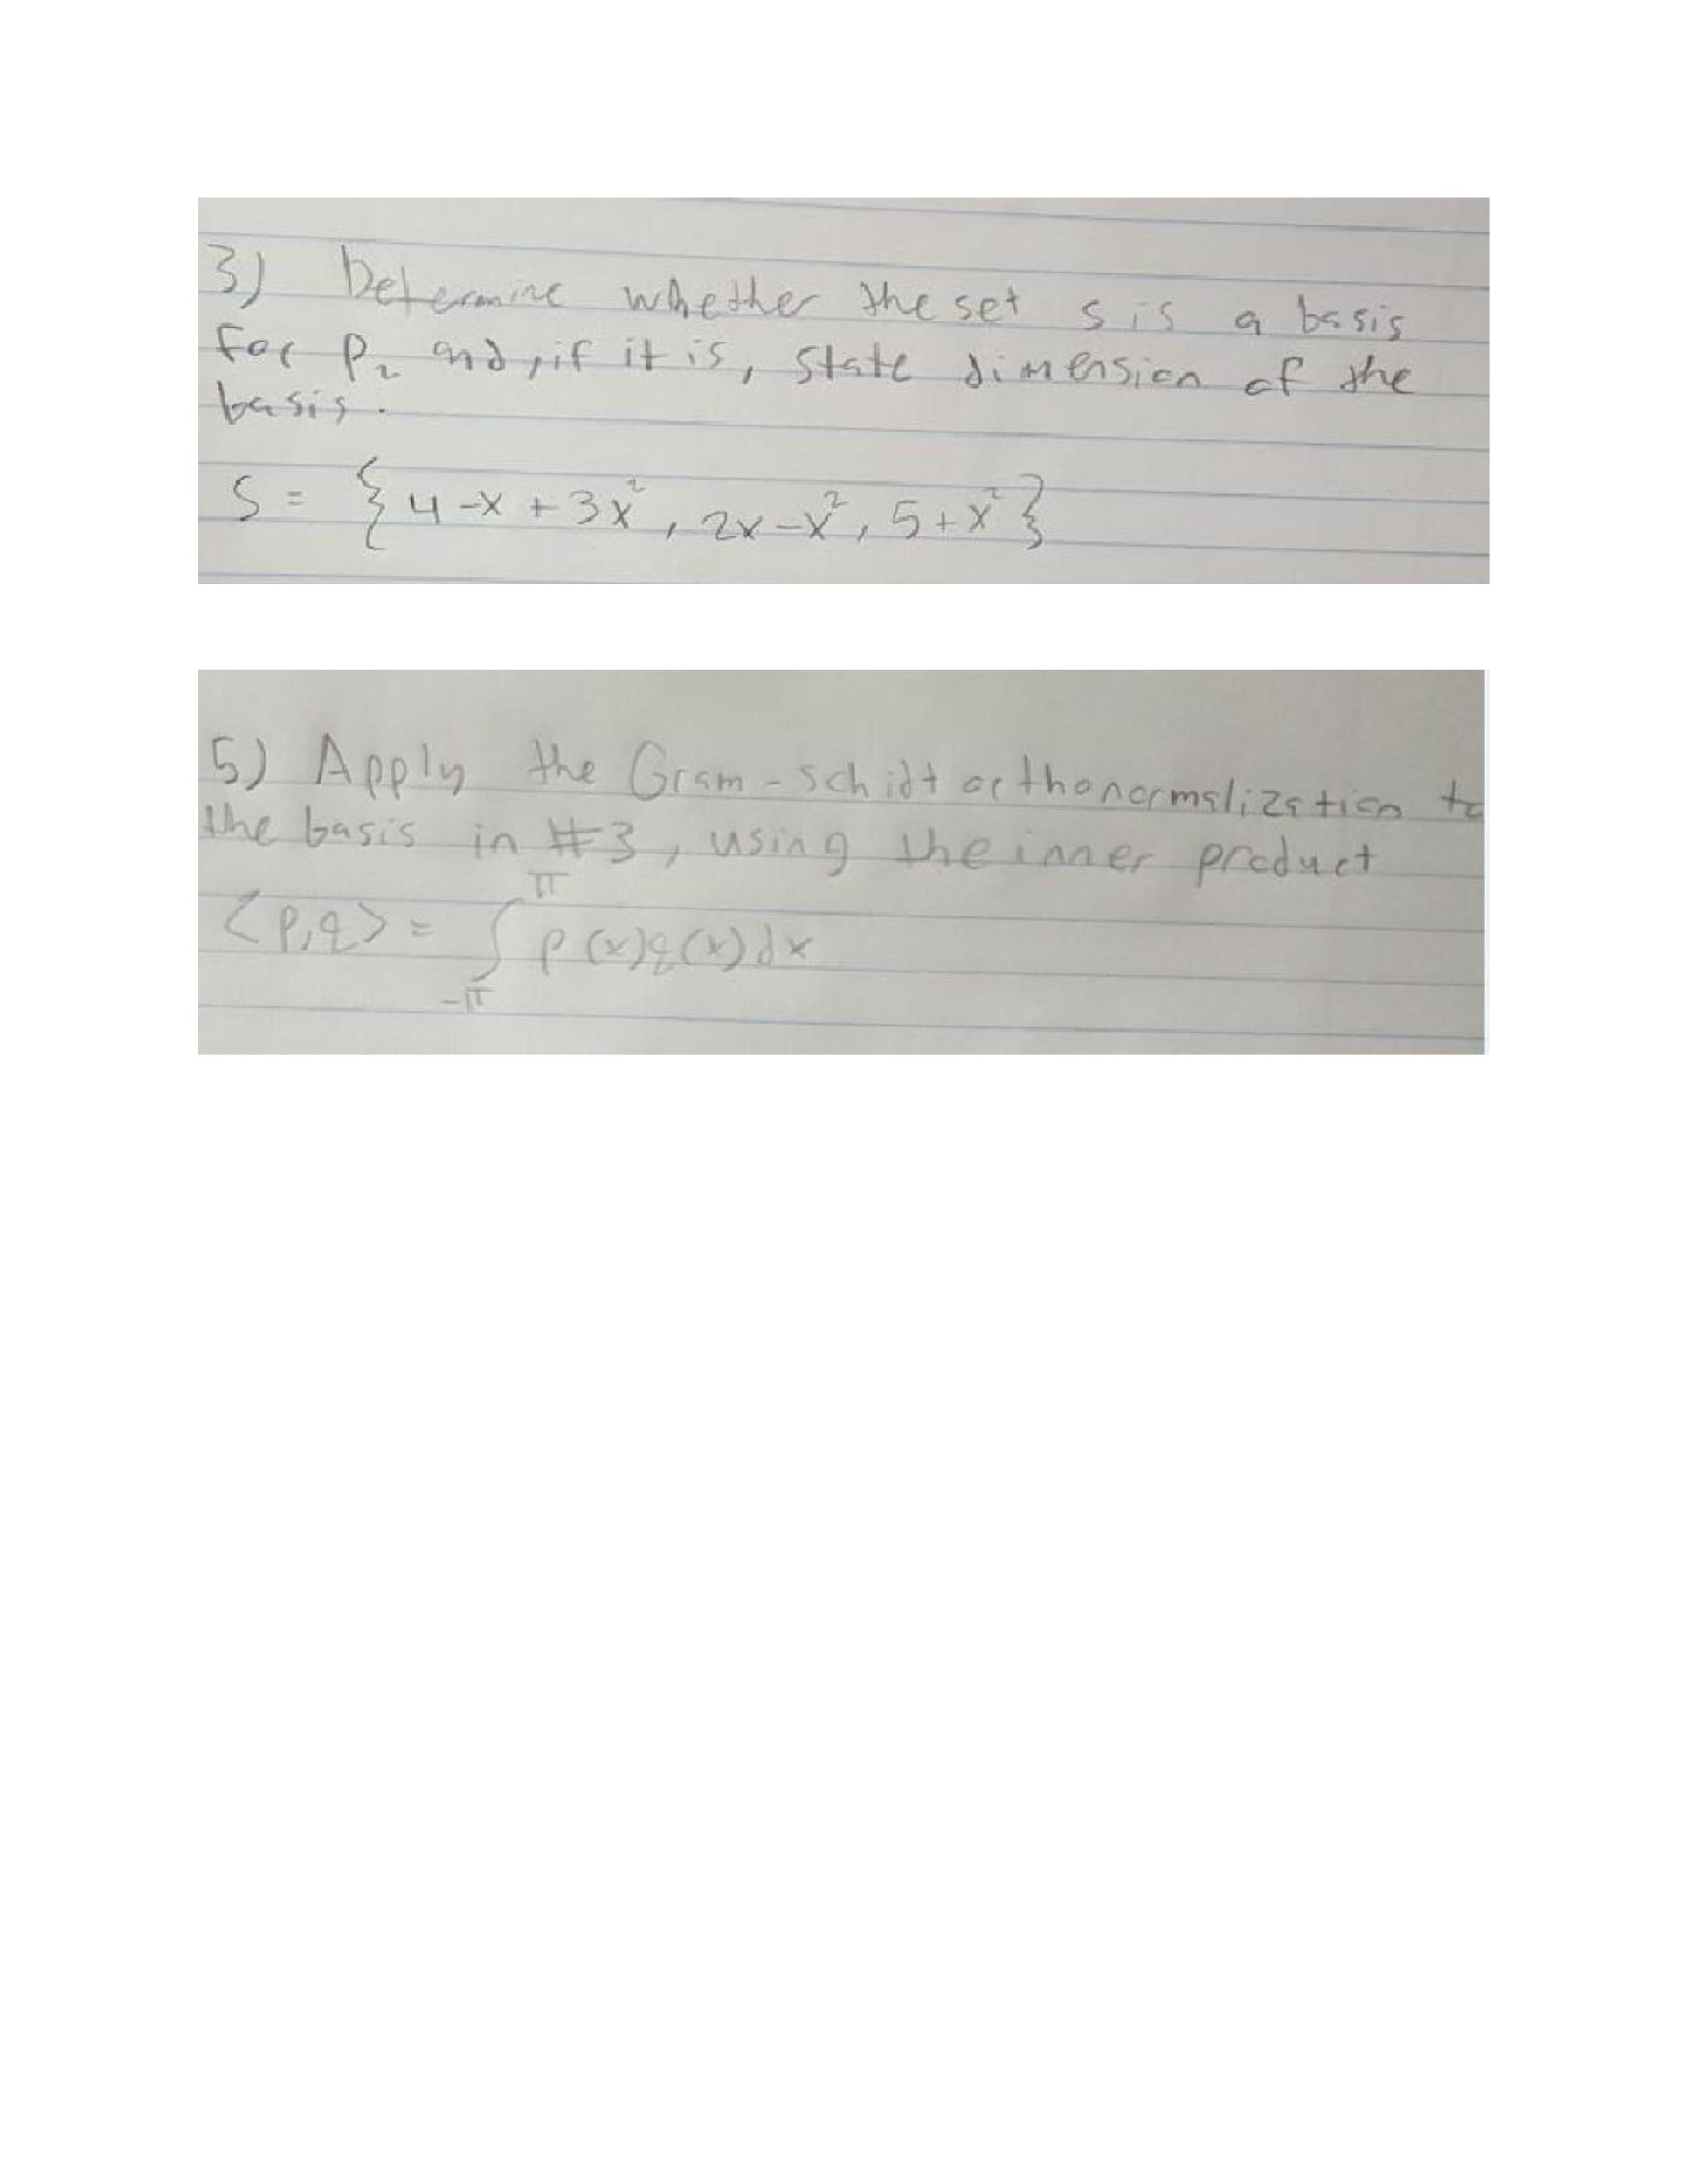 3) Determine whether the set S is a basis
for P₂ and, if it is, state dimension of the
basis.
S = { 4-x+3x², 2x-x², 5+x² }
5) Apply the Gram-Schidt orthonormalization to
the basis in #3, using the inner product
π
<p,q> = ∫ p(x)q(x)dx
-π